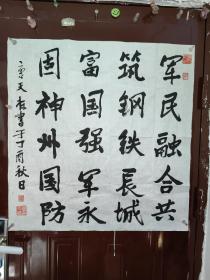 军民融合共
筑钢铁長城
富国强军永
固神州国防
天存書于丁酉秋日